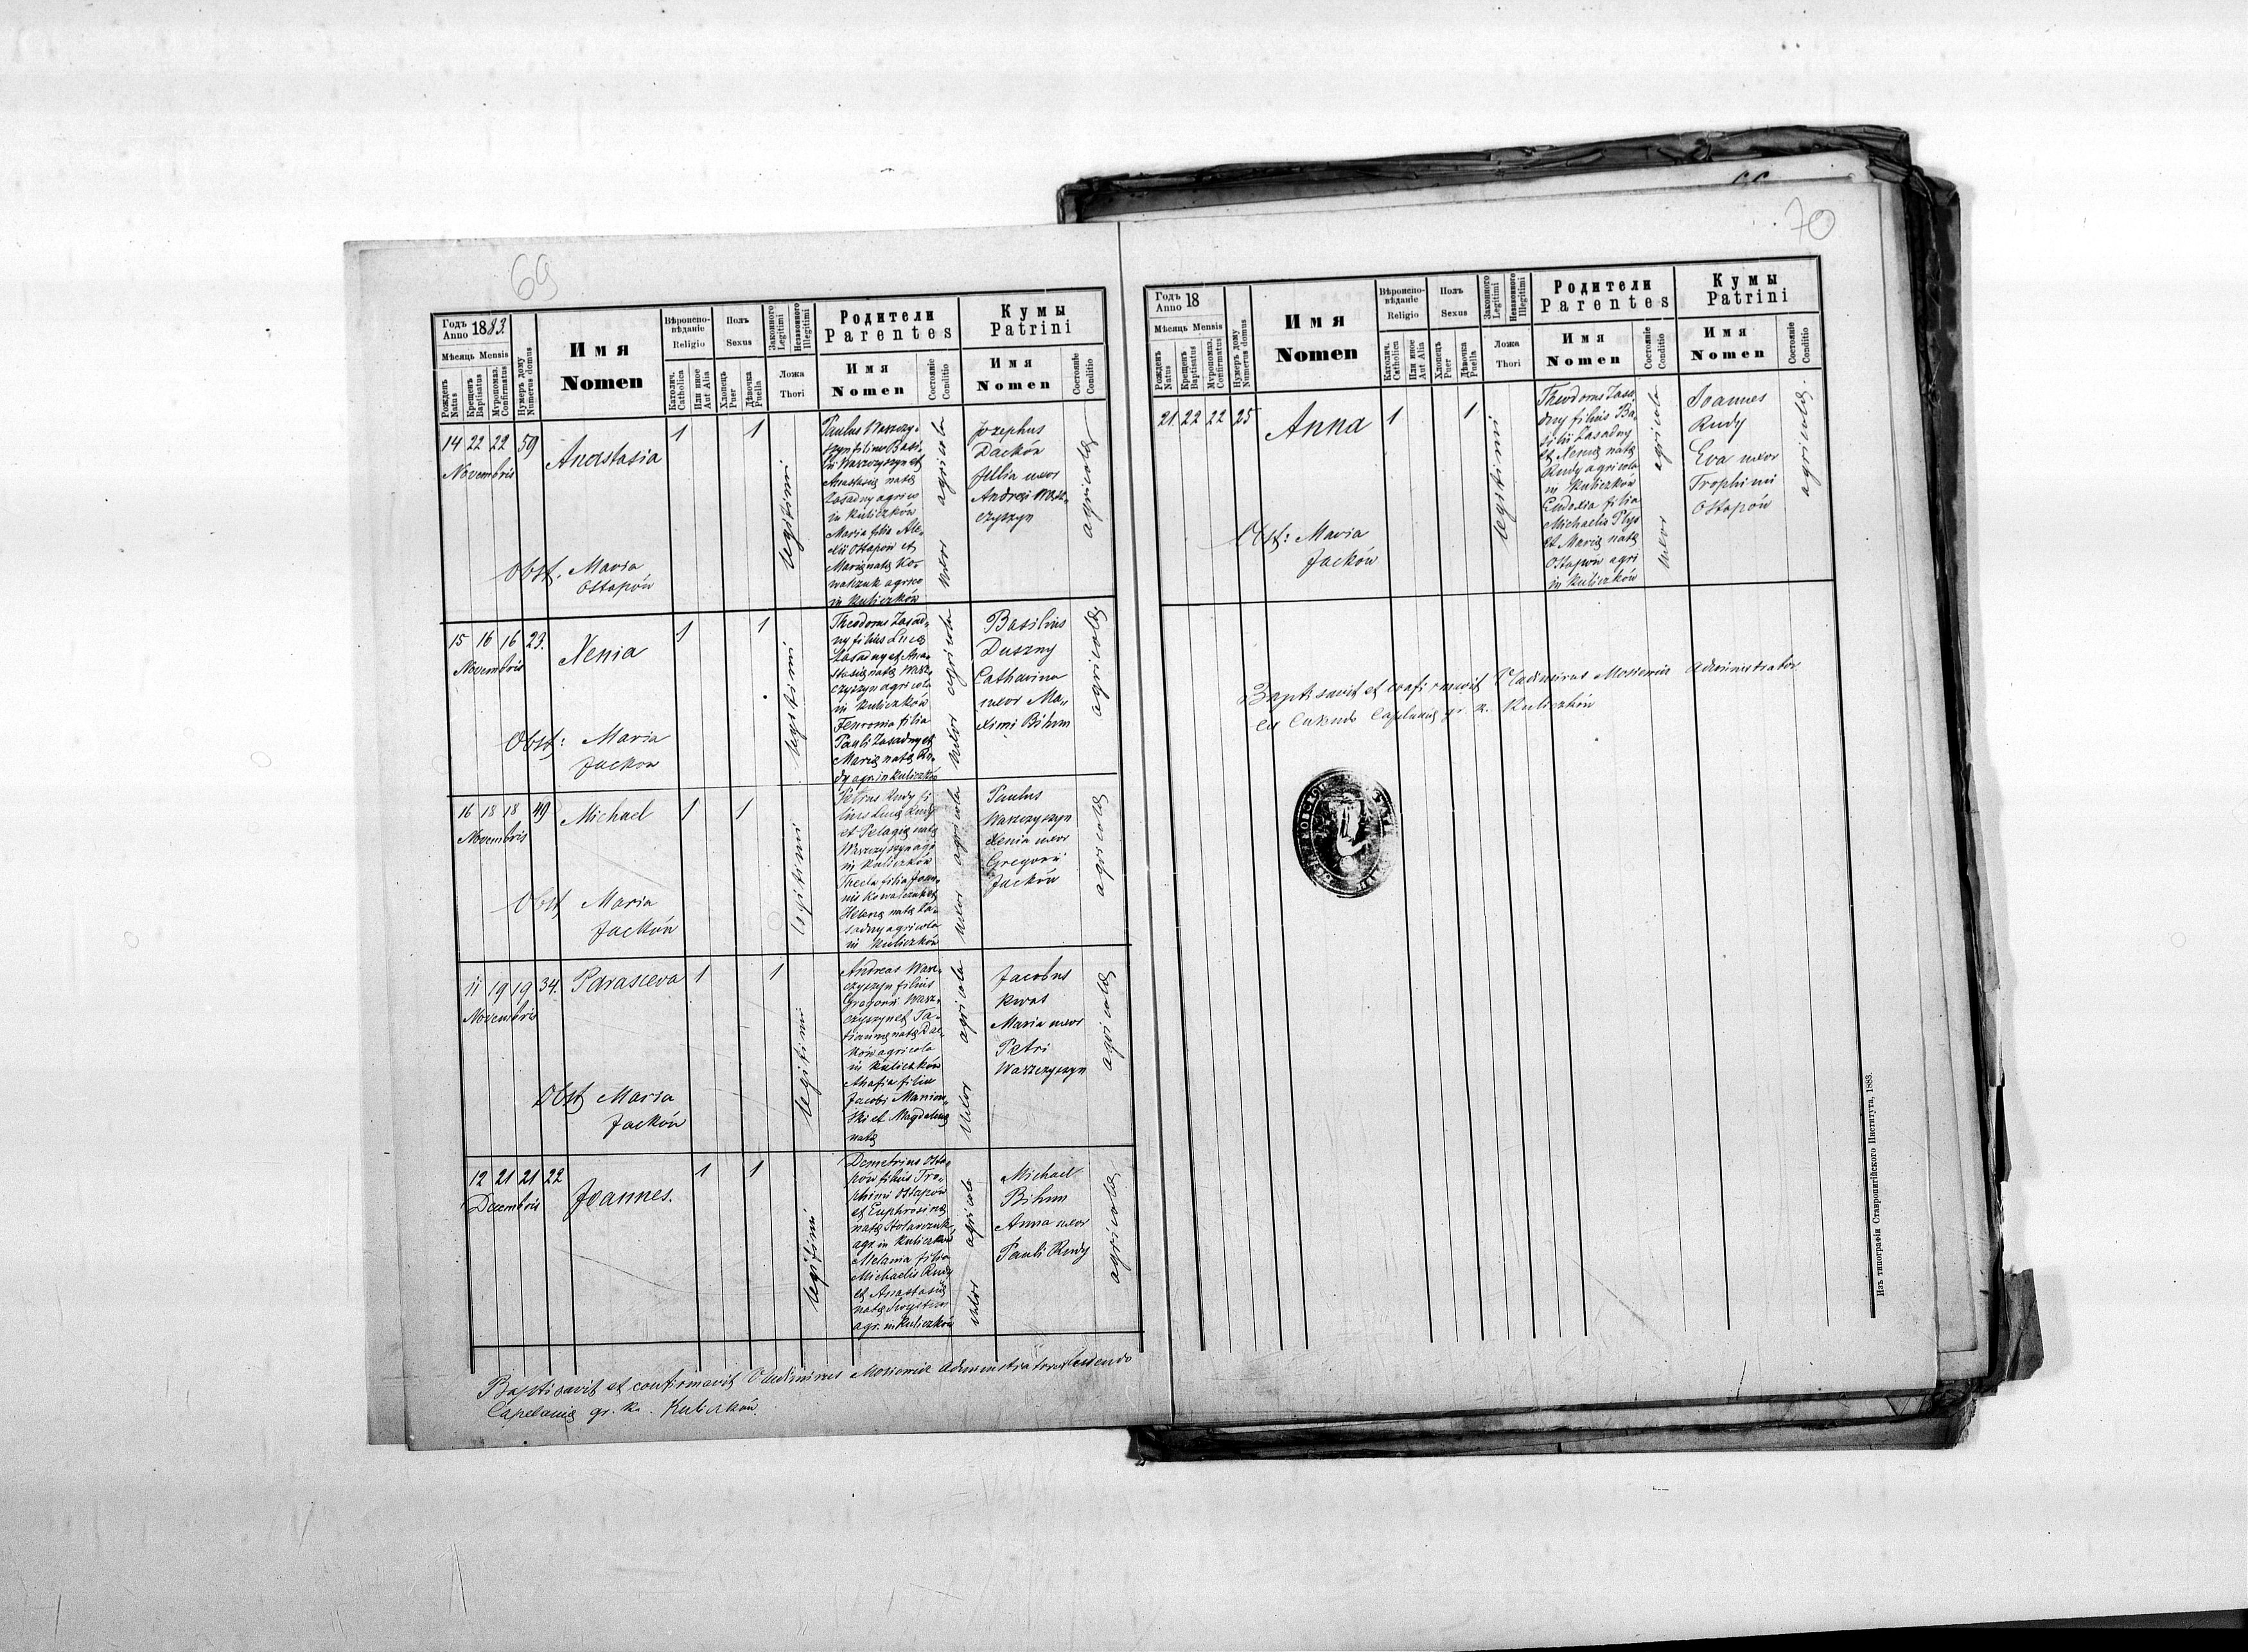 69
Годъ Anno 1883.
Мѣсяцъ Mensis
Рожденъ Natus
Крещенъ Baptisatus
Муропомаз. Confirmatus
Нумеръ дому Numerus domus
Имя
Nomen
Вѣроиспо-
вѣданіе
Religio
Католич. Catholica
Или иное Aut Alia
Полъ
Sexus
Хлопецъ Puer
Дѣвочка Puella
Законного Legitimi
Незаконного Illegitimi
Ложа
Thori
Родители
Parentes
Имя
Nomen
Состояніе Conditio
Кумы
Patrini
Имя
Nomen
Состояніе Conditio
14 22 22 59
Novembris
Anastasia
1 1
legitimi
Paulus Waszczy-
szyn filius Basi-
lii Waszczyszyn et
Anastasiæ natæ
Zasadny agrico
in Kuliczków
Maria filia Ale-
xii Ostapow et
Mariæ natæ Ko-
walczuk agrico
in Kuliczków
agricola
uxor
Jozephus
Dacków
Julia uxor
Andreæ Wasz-
czyszyn
agricolæ
Obst. Maria
Ostapów
15 16 16 23.
Novembris
Xenia
1 1
legitimi
Theodorus Zasad-
ny filius Lucæ
Zasadny et Ana-
stasiæ natæ Wasz-
czyszyn agricola
in Kuliczków
Fenronia filia
Pauli Zasadny et
Mariæ natæ Ru-
dy agr in Kuliczków
agricola
uxor
Basilius
Duszny
Catharina
uxor Ma-
ximi Bihun
agricolæ
Obst: Maria
Jackow
16 18 18 49
Novembris
Michael
1 1
legitimi
Petrus Rudy fi
lius Lucæ Rudy
et Pelagiæ natæ
Waszczyszyn agr
in Kuliczków
Thecla filia Joan-
nis Kowalczuk et
Helenæ natæ Za-
sadny agricola
in Kuliczków
agricola
uxor
Paulus
Waszczyszyn
Xenia uxor
Gregorii
Jacków
agricolæ
Obst Maria
Jacków
11 19 19 34.
Novembris
Parasceva
1 1
legitimi
Andreas Wasz-
czyszyn filius
Gregorii Wasz-
czyszyn et Ta-
tiannæ natæ Dac-
ków agricola
in Kuliczków
filia
Jacobi
ski et Magdalenæ
natæ
agricola
uxor
Jacobus
Kwas
Maria uxor
Petri
Waszczyszyn
agricolæ
Obst Maria
Jacków
12 21 21 22
Decembris
Joannes.
1 1
legitimi
Demetrius Osta-
pów filius Tro-
phimi Ostapów
et Euphrosinæ
natæ Stolarczuk
agr. in Kuliczków
Melania filia
Michaelis Rudy
et Anastasiæ
natæ
agr. in Kuliczków
agricola
uxor
Michael
Bihun
Anna uxor
Pauli Rudy
agricolæ
Baptisavit et confirmavit Vladimirus Mosiewicz Administrator
Capelaniæ gr. k. Kuliczków.
70
Годъ Anno 18
Мѣсяцъ Mensis
Рожденъ Natus
Крещенъ Baptisatus
Муропомаз. Confirmatus
Нумеръ дому Numerus domus
Имя
Nomen
Вѣроиспо-
вѣданіе
Religio
Католич. Catholica
Или иное Aut Alia
Полъ
Sexus
Хлопецъ Puer
Дѣвочка Puella
Законного Legitimi
Незаконного Illegitimi
Ложа
Thori
Родители
Parentes
Имя
Nomen
Состояніе Conditio
Кумы
Patrini
Имя
Nomen
Состояніе Conditio
21 22 22 25
Anna
1 1
legitimi
Theodorus Zasa-
dny filius Ba-
silii Zasadny
et Xeniæ natæ
Rudy agricola
in Kuliczków
Eudoxia filia
Michaelis Plys
et Mariæ natæ
Ostapow agri
in Kuliczków
agricola
uxor
Joannes
Rudy
Eva uxor
Trophimi
Ostapów
agricolæ.
Obst: Maria
Jacków
Baptisavit et confirmavit Vladimirus Mosiewicz Administrator
Capelaniæ gr. k. Kuliczków
Изъ типографіи Ставропигійского Института, 1883.